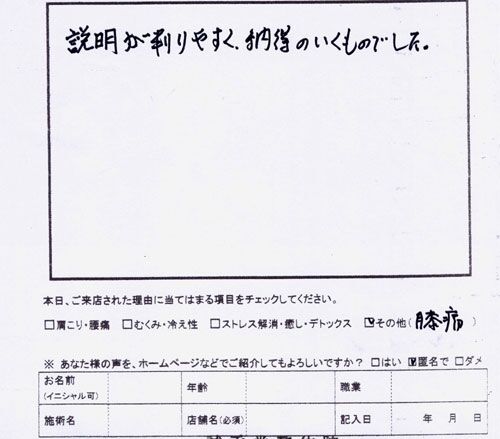 説明が判りやすく、納得のいくものでした。
本日、ご来店された理由に当てはまる項目をチェックしてください。
□肩こり・腰痛 □むくみ・冷え性 □ストレス解消・癒し・デトックス ☑その他(膝痛)
※ あなた様の声を、ホームページなどでご紹介してもよろしいですか? □はい ☑匿名で □ダメ
お名前 年齢 職業
(イニシャル可)
施術名 店舗名(必須) 記入日 年 月 日